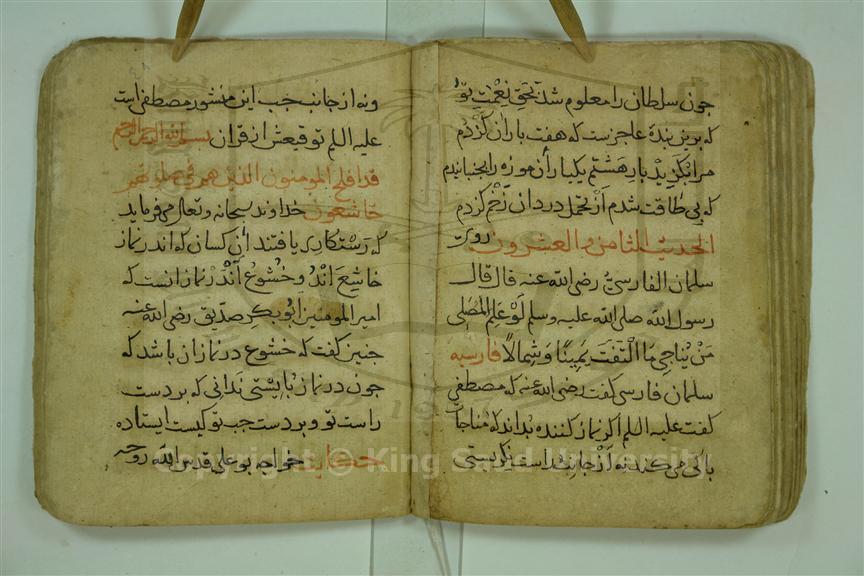 جون سلطان را معلوم شد تحق نعمت تو
که برین بندهٔ عاجزست که هفت بار آن کژدم
مرا بکزید بار هشتم یکبار آن موزه را بجنبانیدم
که بی طاقت شدم از تحمل درد آن زخم کژدم
الحدیث الثامن والعشرون روی
سلمان الفارسی رضی الله عنه قال قال
رسول الله صلی الله علیه وسلم لو علم المصلی
من یناجی ما التفت یمینا وشمالا فارسیه
سلمان فارسی کفت رضی الله عنه که مصطفی
کفت علیه السلم اکر نماز کننده بداند که مناجات
با کی می کند نه از جانب راست نکریستی
ونه از جانب جب این منشور مصطفی است
علیه السلم توقیعش از قران بسم الله الرحمن الرحیم
قد افلح المومنون الذین هم فی صلوتهم
خاشعون خداوند سبحانه وتعالی می فرماید
که رستکاری یافتند آن کسان که اندر نماز
خاشع اند وخشوع اندر نماز انست که
امیر المومنین ابوبکر صدیق رضی الله عنه
جنین کفت که خشوع در نماز ان باشد که
جون در نماز بایستی ندانی که بر دست
راست تو و بر دست جب تو کیست ایستاده
حکایت خواجه بو علی قدس الله روحه
Copyright © King Saud University